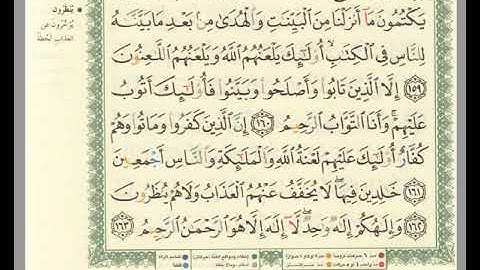 يَكْتُمُونَ مَآ أَنزَلْنَا مِنَ ٱلْبَيِّنَـٰتِ وَٱلْهُدَىٰ مِنۢ بَعْدِ مَا بَيَّنَّـٰهُ
لِلنَّاسِ فِى ٱلْكِتَـٰبِ أُو۟لَـٰٓئِكَ يَلْعَنُهُمُ ٱللَّهُ وَيَلْعَنُهُمُ ٱللَّـٰعِنُونَ
١٥٩ إِلَّا ٱلَّذِينَ تَابُوا۟ وَأَصْلَحُوا۟ وَبَيَّنُوا۟ فَأُو۟لَـٰٓئِكَ أَتُوبُ
عَلَيْهِمْ وَأَنَا ٱلتَّوَّابُ ٱلرَّحِيمُ ١٦٠ إِنَّ ٱلَّذِينَ كَفَرُوا۟ وَمَاتُوا۟ وَهُمْ
كُفَّارٌ أُو۟لَـٰٓئِكَ عَلَيْهِمْ لَعْنَةُ ٱللَّهِ وَٱلْمَلَـٰٓئِكَةِ وَٱلنَّاسِ أَجْمَعِينَ
١٦١ خَـٰلِدِينَ فِيهَا ۖ لَا يُخَفَّفُ عَنْهُمُ ٱلْعَذَابُ وَلَا هُمْ يُنظَرُونَ
١٦٢ وَإِلَـٰهُكُمْ إِلَـٰهٌ وَٰحِدٌ ۖ لَّآ إِلَـٰهَ إِلَّا هُوَ ٱلرَّحْمَـٰنُ ٱلرَّحِيمُ ١٦٣
يُنظَرُون
يُؤخَّرُون عن
العذاب لحظةً